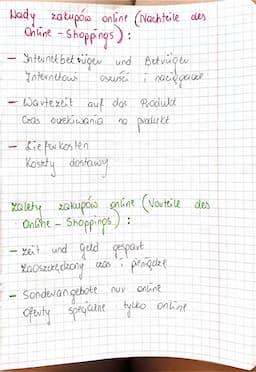 Wady zakupów online (Nachteile des
Online-Shoppings):
- Internetbetrüger und Betrüger
Internetowi oszuści i naciągacze
- Wartezeit auf das Produkt
Czas oczekiwania na produkt
- Lieferkosten
Koszty dostawy
Zalety zakupów online (Vorteile des
Online-Shoppings):
- Zeit und Geld gespart
Zaoszczędzony czas i pieniądze
- Sonderangebote nur online
Oferty specjalne tylko online